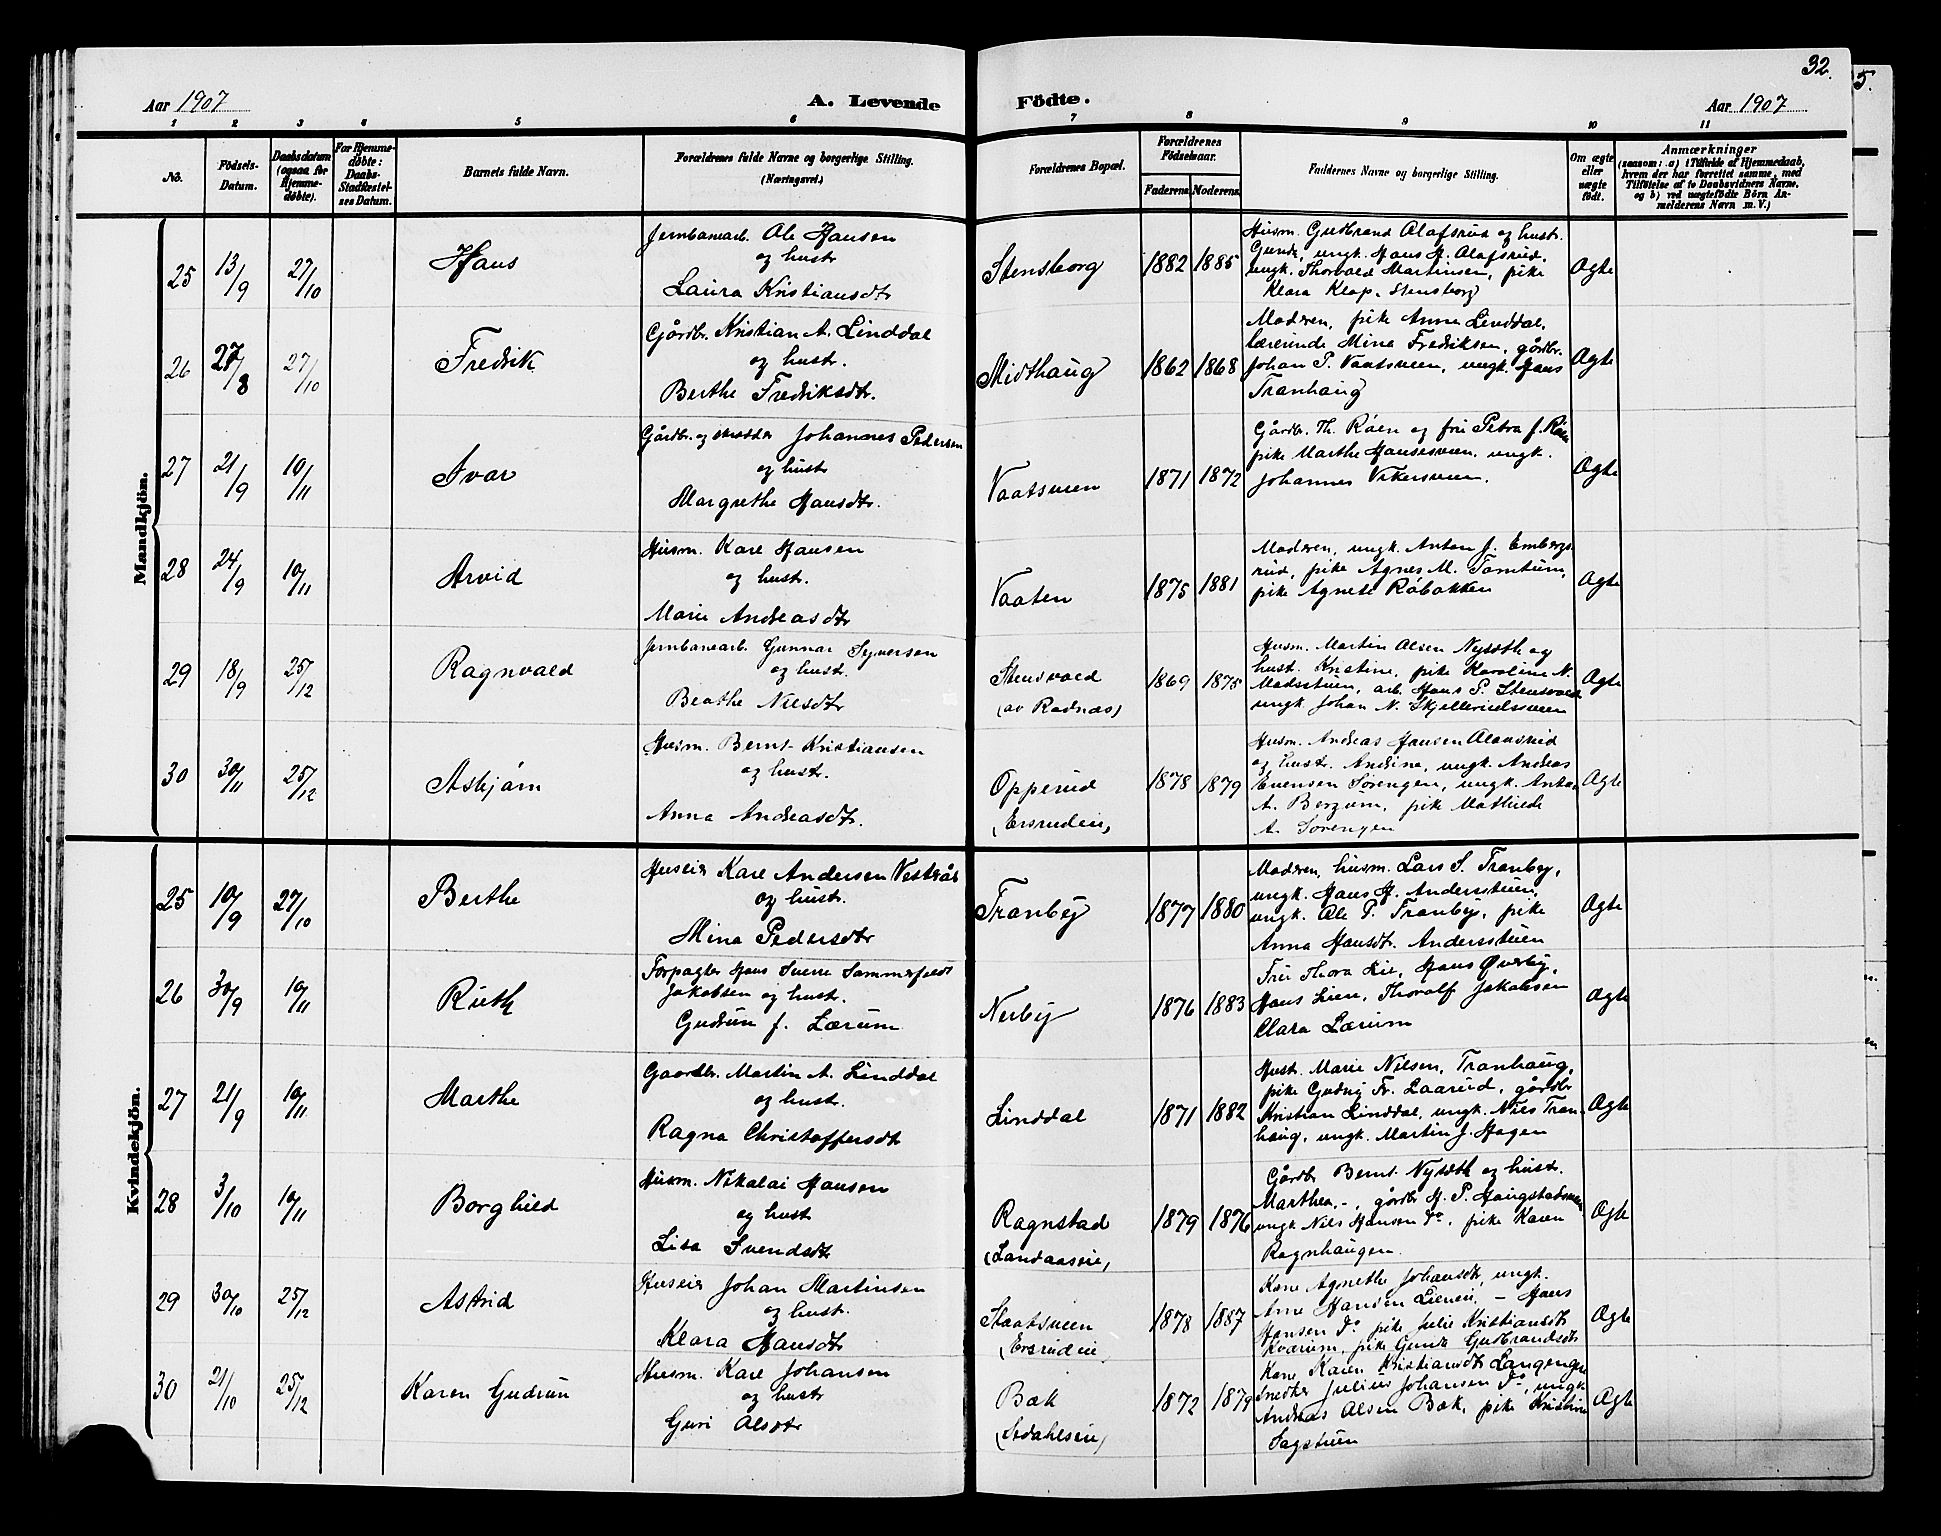 32.
5.
Aar 1907
A. Levende
Födte.
Aar 1907
1 2 3 4 5 6 7 8 9 10 11
No.
Födsels-
Datum.
Daabsdatum
(ogsaa for
Hjemme-
døbte).
For Hjemme-
døbte:
Daabs-
Stadfæstel-
ses Datum.
Barnets fulde Navn.
Forældrenes fulde Navne og borgerlige Stilling.
(Næringsvei.)
Forældrenes Bopæl.
Forældrenes
Födselsaar.
Faderens. Moderens.
Faddernes Navne og borgerlige Stilling.
Om ægte
eller
uægte
födt.
Anmærkninger
(saasom: a) i Tilfælde af Hjemmedaab,
hvem der har forrettet samme, med
Tilføielse af to Daabsvidners Navne,
og b) ved uægtefödte Börn An-
melderens Navn m. V.)
Mandkjön.
25 13/9 27/10 Hans
Jernbanearb. Ole Hansen
og hustr.
Laura Kristiansdtr
Stensborg 1882 1885
Husm. Gudbrand Olafsrud og hustr.
Gunda, ungk. Hans H. Olafsrud,
ungk. Thorvald Martinsen, pike
Klara Klop. Stensborg
Ægte
26 27/8 27/10 Fredrik
Gårdbr. Kristian A. Linddal
og hustr.
Berthe Fredriksdtr.
Midthaug 1862 1868
Moderen, pike Anna Linddal,
Lærerinde Mina Fredriksen, gårdbr.
Johan P. Vaatsveen, ungk. Hans
Tranhaug
Ægte
27 21/9 10/11 Ivar
Gårdbr. og skrædder Johannes Pedersen
og hustr
Margrethe Hansdtr.
Vaatsveen 1871 1872
Gårdbr. Th. Røen og fru Petra f. Røen
pike Marthe Hansesveen, ungk.
Johannes Vikersveen.
Ægte
28 24/9 10/11 Arvid
Husm. Karl Hansen
og hustr.
Marie Andreasdtr
Vaaten 1875 1881
Moderen, ungk. Anton J. Embergs
rud, pike Agnes M. Tomtum,
pike Agnete Råbakken
Ægte
29 18/9 25/12 Ragnvald
Jernbanearb. Gunnar Syversen
og hustr.
Beathe Nilsdtr
Stensvold
(av Radnæs)
1869 1875
Husm. Martin Olsen Nysæth og
hust. Kristine, pike Karoline N.
Madsstuen, arb. Hans P. Stensvold
ungk. Johan N. Skjellerudsveen
Ægte
30 30/11 25/12 Asbjørn
Husm. Bernt Kristiansen
og hustr.
Anna Andreasdtr.
Opperud
(Ersrudeie)
1878 1879
Husm. Andreas Hansen
og hustr. Andrine, ungk. Andreas
Evensen Sørengen, ungk. Anton
A. Bergum, pike Mathilde
A. Sørengen
Ægte
Kvindekjön.
25 10/9 27/10 Berthe
Huseier Karl Andersen Vestrås
og hustr.
Mina Pedersdtr
Tranby 1877 1880
Moderen, husm. Lars S. Tranby,
ungk. Hans H. Andersstuen,
ungk. Ole P. Tranby, pike
Anna Hansdtr. Andersstuen
Ægte
26 30/9 10/11 Ruth
Forpagter Hans Sverre Sommerfeldt
Jakobsen og hustr.
Gudrun f. Lærum
Nerby 1876 1883
Fru Thora Lie, Hans Øverby,
Hans Lien, Thoralf Jakobsen
Clara Lærum
Ægte
27 21/9 10/11 Marthe
Gaardbr. Martin A. Linddal
og hustr.
Ragna Christoffersdtr
Linddal 1871 1882
Hust. Marie Nilsen, Tranhaug,
pike Gudvig Fr. Laarud, gårdbr
Kristian Linddal, ungk. Nils Tran-
haug, ungk. Martin J. Hagen
Ægte
28 3/10 10/11 Borghild
Husm. Nikolai Hansen
og hustr
Lisa Svendsdtr
Ragnstad
(Landaaseie)
1879 1876
Gårdbr Bernt Nysæth og hustr.
Marthea -, gårdbr H. P. Haugstadsveen
ungk Nils Hansen do, pike Karen
Ragnhaugen.
Ægte
29 30/10 25/12 Astrid
Huseier Johan Martinsen
og hustr.
Klara Hansdtr
Staatsveen
Ersrudeie
1878 1887
Kone Agnethe Johansdtr, ungk.
Arne Hansen Lieneie, - Hans
Hansen do pike Julie Kristiansdtr
Kværum, pike Gunda Gudbrandsdtr
Ægte
30 21/10 25/12 Karen Gudrun
Husm. Karl Johansen
og hustr
Guri Olsdtr
Bæk
1872 1879
Kone Karen Kristiansdtr Langengen
Snedker Julius Johansen do, ungk
Andreas Olsen Bæk, pike Kristine
Sagstuen
Ægte